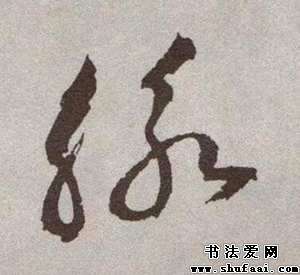 脉
书法爱网
www.shufaai.com